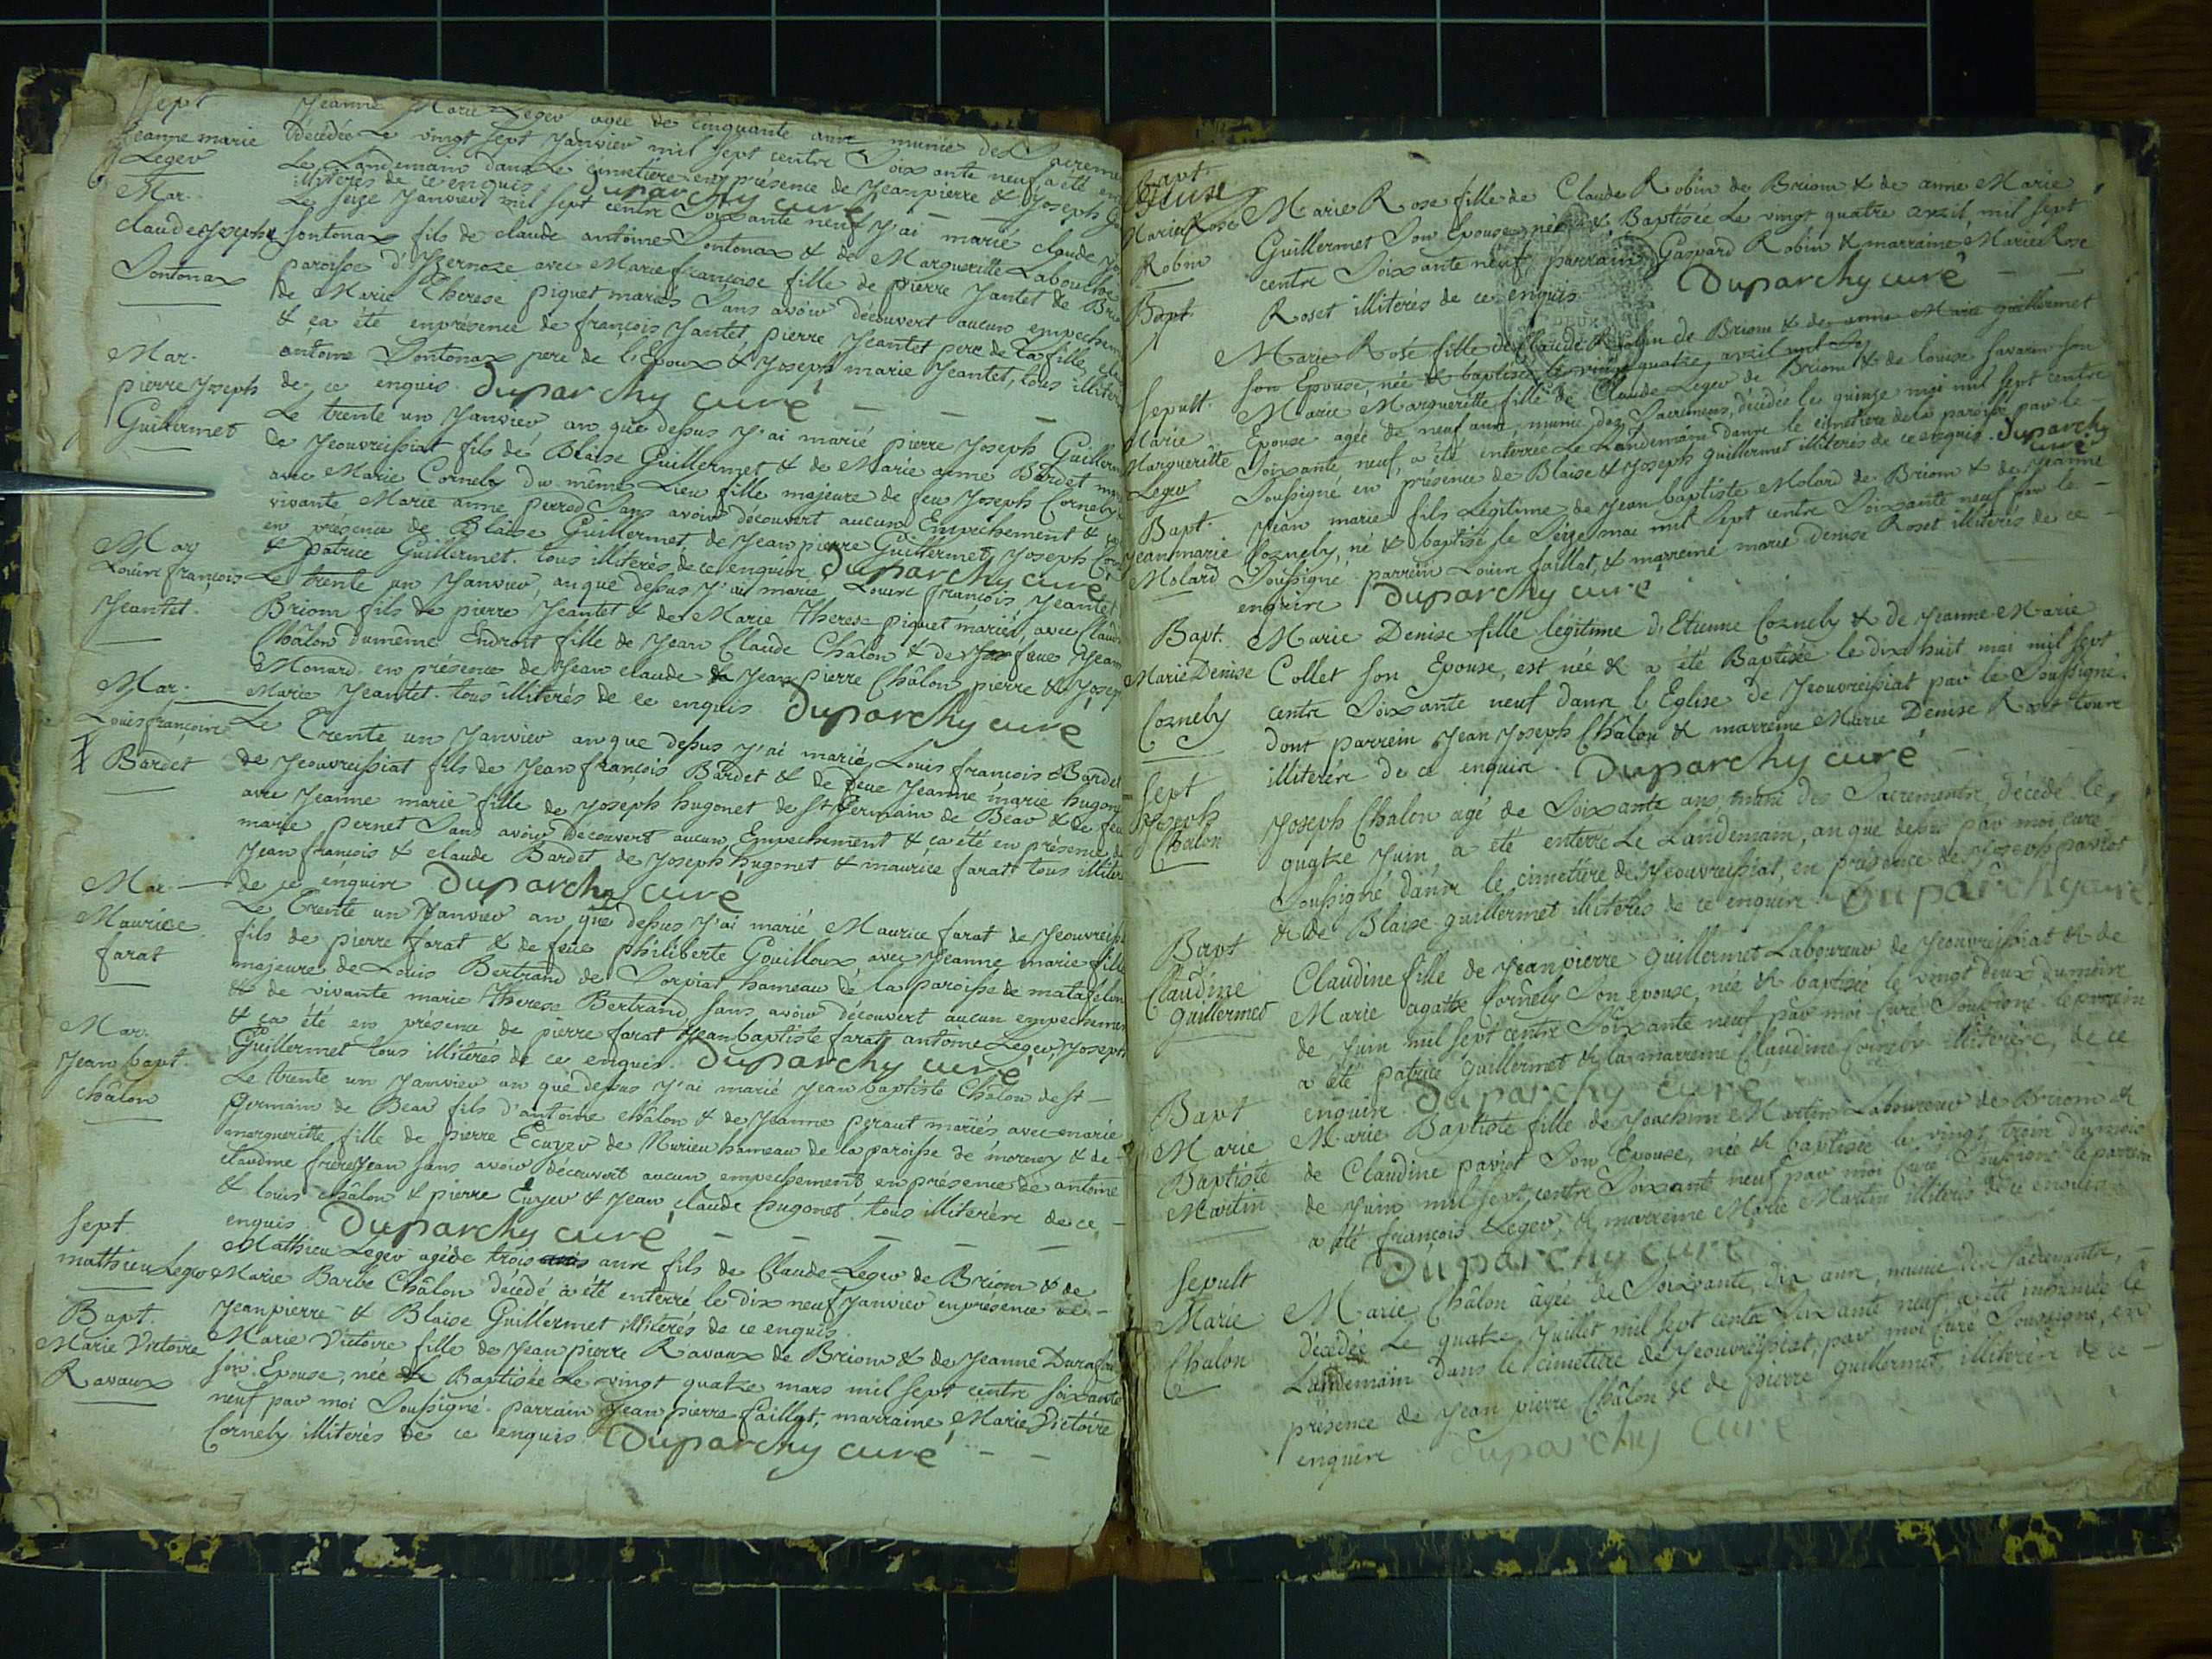 Sept
Jeanne marie
Leger
Jeanne Marie Leger agée de cinquante ans munie des Sacremen
décédée Le vingt sept Janvier mil sept cents Soixante neuf a été en
Le Landemain dans Le cimetiere en présence de Jeanpierre & Joseph
illiterés de ce enquis. Duparchy curé
Mar.
claude Joseph
Sontonax
Le seize Janvier mil sept cents Soixante neuf J'ai marié claude
Sontonax fils de claude antoine Sontonax & de Margueritte
paroisse d'Izernore avec Marie françoise fille de pierre Jantet de
de Marie Therese piquet mariés Sans avoir découvert aucun empechem
& ça été en présence de françois Jantet, pierre Jeantet pere de La fille
antoine Sontonax pere de l'Epoux & Joseph marie Jeantet, tous
de ce enquis. Duparchy curé
Mar.
pierre Joseph
Guillermet
Le trente un Janvier an que dessus J'ai marié pierre Joseph
de Jeouvreissiat fils de Blaise Guillermet & de Marie anne Bardet
avec Marie Cornely du même Lieu fille majeure de feu Joseph Cornely
vivante Marie anne perrod Sans avoir découvert aucun Empêchement &
en présence de Blaise Guillermet, de Jean pierre Guillermet, Joseph
& patrice Guillermet. tous illiterés de ce enquis Duparchy curé
Mar
Louis françois
Jeantet.
Le trente un Janvier, an que dessus J'ai marié Louis françois Jeantet
Briom fils de pierre Jeantet & de Marie Therese piquet mariés, avec
Châlon du même Endroit fille de Jean Claude Châlon & de feue
Monard en présence de Jean claude & Jean Pierre Châlon pierre &
Marie Jeantet. tous illiterés de ce enquis. Duparchy curé
Mar.
Louis françois
Bardet
Le Trente un Janvier an que dessus J'ai marié, Louis françois Bardet
de Jeouvreissiat fils de Jean françois Bardet & de feue Jeanne marie
avec Jeanne marie fille de Joseph hugonet de St Germain de Bear & de
marie pernet Sans avoir découvert aucun Empechement & ça été en présence
Jean françois & claude Bardet, de Joseph hugonet & maurice farat tous
de ce enquis Duparchy curé
Mar.
Maurice
farat
Le Trente un Janvier an que dessus J'ai marié Maurice farat de
fils de pierre farat & de feüe philiberte Gouilloux avec Jeanne marie fille
majeure de Louis Bertrand de Sorpiat hameau de la paroisse de matafelon
& de vivante marie Therese Bertrand sans avoir découvert aucun empechemen
& ça été en présence de pierre farat Jean baptiste farat, antoine Leger, Joseph
Guillermet tous illiterés de ce enquis. Duparchy curé
Mar.
Jean bapt.
châlon
Le trente un Janvier an que dessus J'ai marié Jean baptiste Châlon de st
germain de Bear fils d'antoine châlon & de Jeanne peraut mariés avec marie
margueritte fille de pierre Ecuyer de Nurieu hameau de la paroisse de mornay & de
claudine frerejean sans avoir découvert aucun empechement en présence de antoine
& louis châlon & pierre Cuyer & Jean claude hugonot. tous illiterére de ce
enquis Duparchy curé
Sept
mathieu Leger
Mathieu Leger agé de trois ans fils de Claude Leger de Briom & de
Marie Barbe Châlon décédé a été enterré le dix neuf Janvier en présence de
Jeanpierre & Blaise Guillermet illiterés de ce enquis.
Bapt.
Marie Victoire
Ravaux
Marie Victoire fille de Jean pierre Ravaux de Briom & de Jeanne
son Epouse, née & Baptisée Le vingt quatre mars mil sept cents soixante
neuf par moi Soussigné. parrain Jean pierre faillat, marraine Marie Victoire
Cornely illiterés de ce enquis. Duparchy curé
Bapt.
Marie Rose
Robin
Marie Rose fille de Claude Robin de Briom & de anne Marie
Guillermet Son Epouse née & Baptisée Le vingt quatre avril mil sept
cents Soixante neuf parrain Gaspard Robin & marraine Marie Rose
Roset illiterés de ce enquis Duparchy curé
Bapt
Marie Rose fille de Claude Robin de Briom & de anne Marie guillermet
son Epouse née & baptisée le vingt quatre avril mil
Sepult.
Marie
Margueritte
Leger
Marie Margueritte fille de Claude Leger de Briom & de louise savarin son
Epouse agée de neuf ans, munie des Sacremens, décédée le quinze mai mil sept cents
Soixante neuf, a été enterrée Le Landemain dans le cimetiere de la paroisse par le
Soussigné en présence de Blaise & Joseph guillermet illiterés de ce enquis. Duparchy
curé
Bapt.
Jean marie
Molard
Jean marie fils Légitime de Jean baptiste Molard de Briom & de Jeanne
Cornely, né & baptisé le Seize mai mil Sept cents Soixante neuf par le
Soussigné parrein Louis faillat, & marreine marie denise Roset illiterés de ce
enquis Duparchy curé
Bapt.
Marie Denise
Cornely
Marie Denise fille légitime d'Etienne Cornely & de Jeanne Marie
Collet son Epouse, est née & a été Baptisée le dix huit mai mil sept
cents Soixante neuf dans l'Eglise de Jeouvreissiat par le Soussigné
dont parrein Jean Joseph Châlon & marreine Marie Denise Roset tous
illiterére de ce enquis. Duparchy curé
Sept
Joseph
Chalon
Joseph Chalon agé de Soixante ans, muni des Sacrements, décédé le
quatre Juin, a été enterré Le Landemain, an que dessus par moi curé
Soussigné dans le cimetiere de Jeouvreissiat, en présence de Joseph pariot
& de Blaise guillermet illiterés de ce enquis. Duparchy curé
Bapt
Claudine
guillermet
Claudine fille de Jean pierre guillermet Laboureur de Jeouvreissiat & de
Marie agathe Cornely Son epouse, née & baptisée le vingt deux du mois
de Juin mil sept cents Soixante neuf par moi curé Soussigné le parrein
a été patrice guillermet & la marreine Claudine Cornely illiterére, de ce
enquis. Duparchy Curé
Bapt
Marie
Baptiste
Martin
Marie Baptiste fille de Joachim Martin Laboureur de Briom &
de Claudine pariot Son Epouse, née & baptisée le vingt trois du mois
de Juin mil Sept cents Soixante neuf par moi Curé Soussigné le parrein
a été françois Leger, & marreine Marie Martin illiterés de ce enquis
Duparchy curé
Sepult
Marie
Chalon
Marie Châlon âgée de Soixante dix ans, munie des Sacrements,
décédée Le quatre Juillet mil sept cents Soixante neuf a été inhumée le
Landemain dans le cimetiere de Jeouvreissiat par moi Curé Soussigné, en
présence de Jean pierre Châlon & de pierre guillermet illiterére de ce
enquis Duparchy Curé